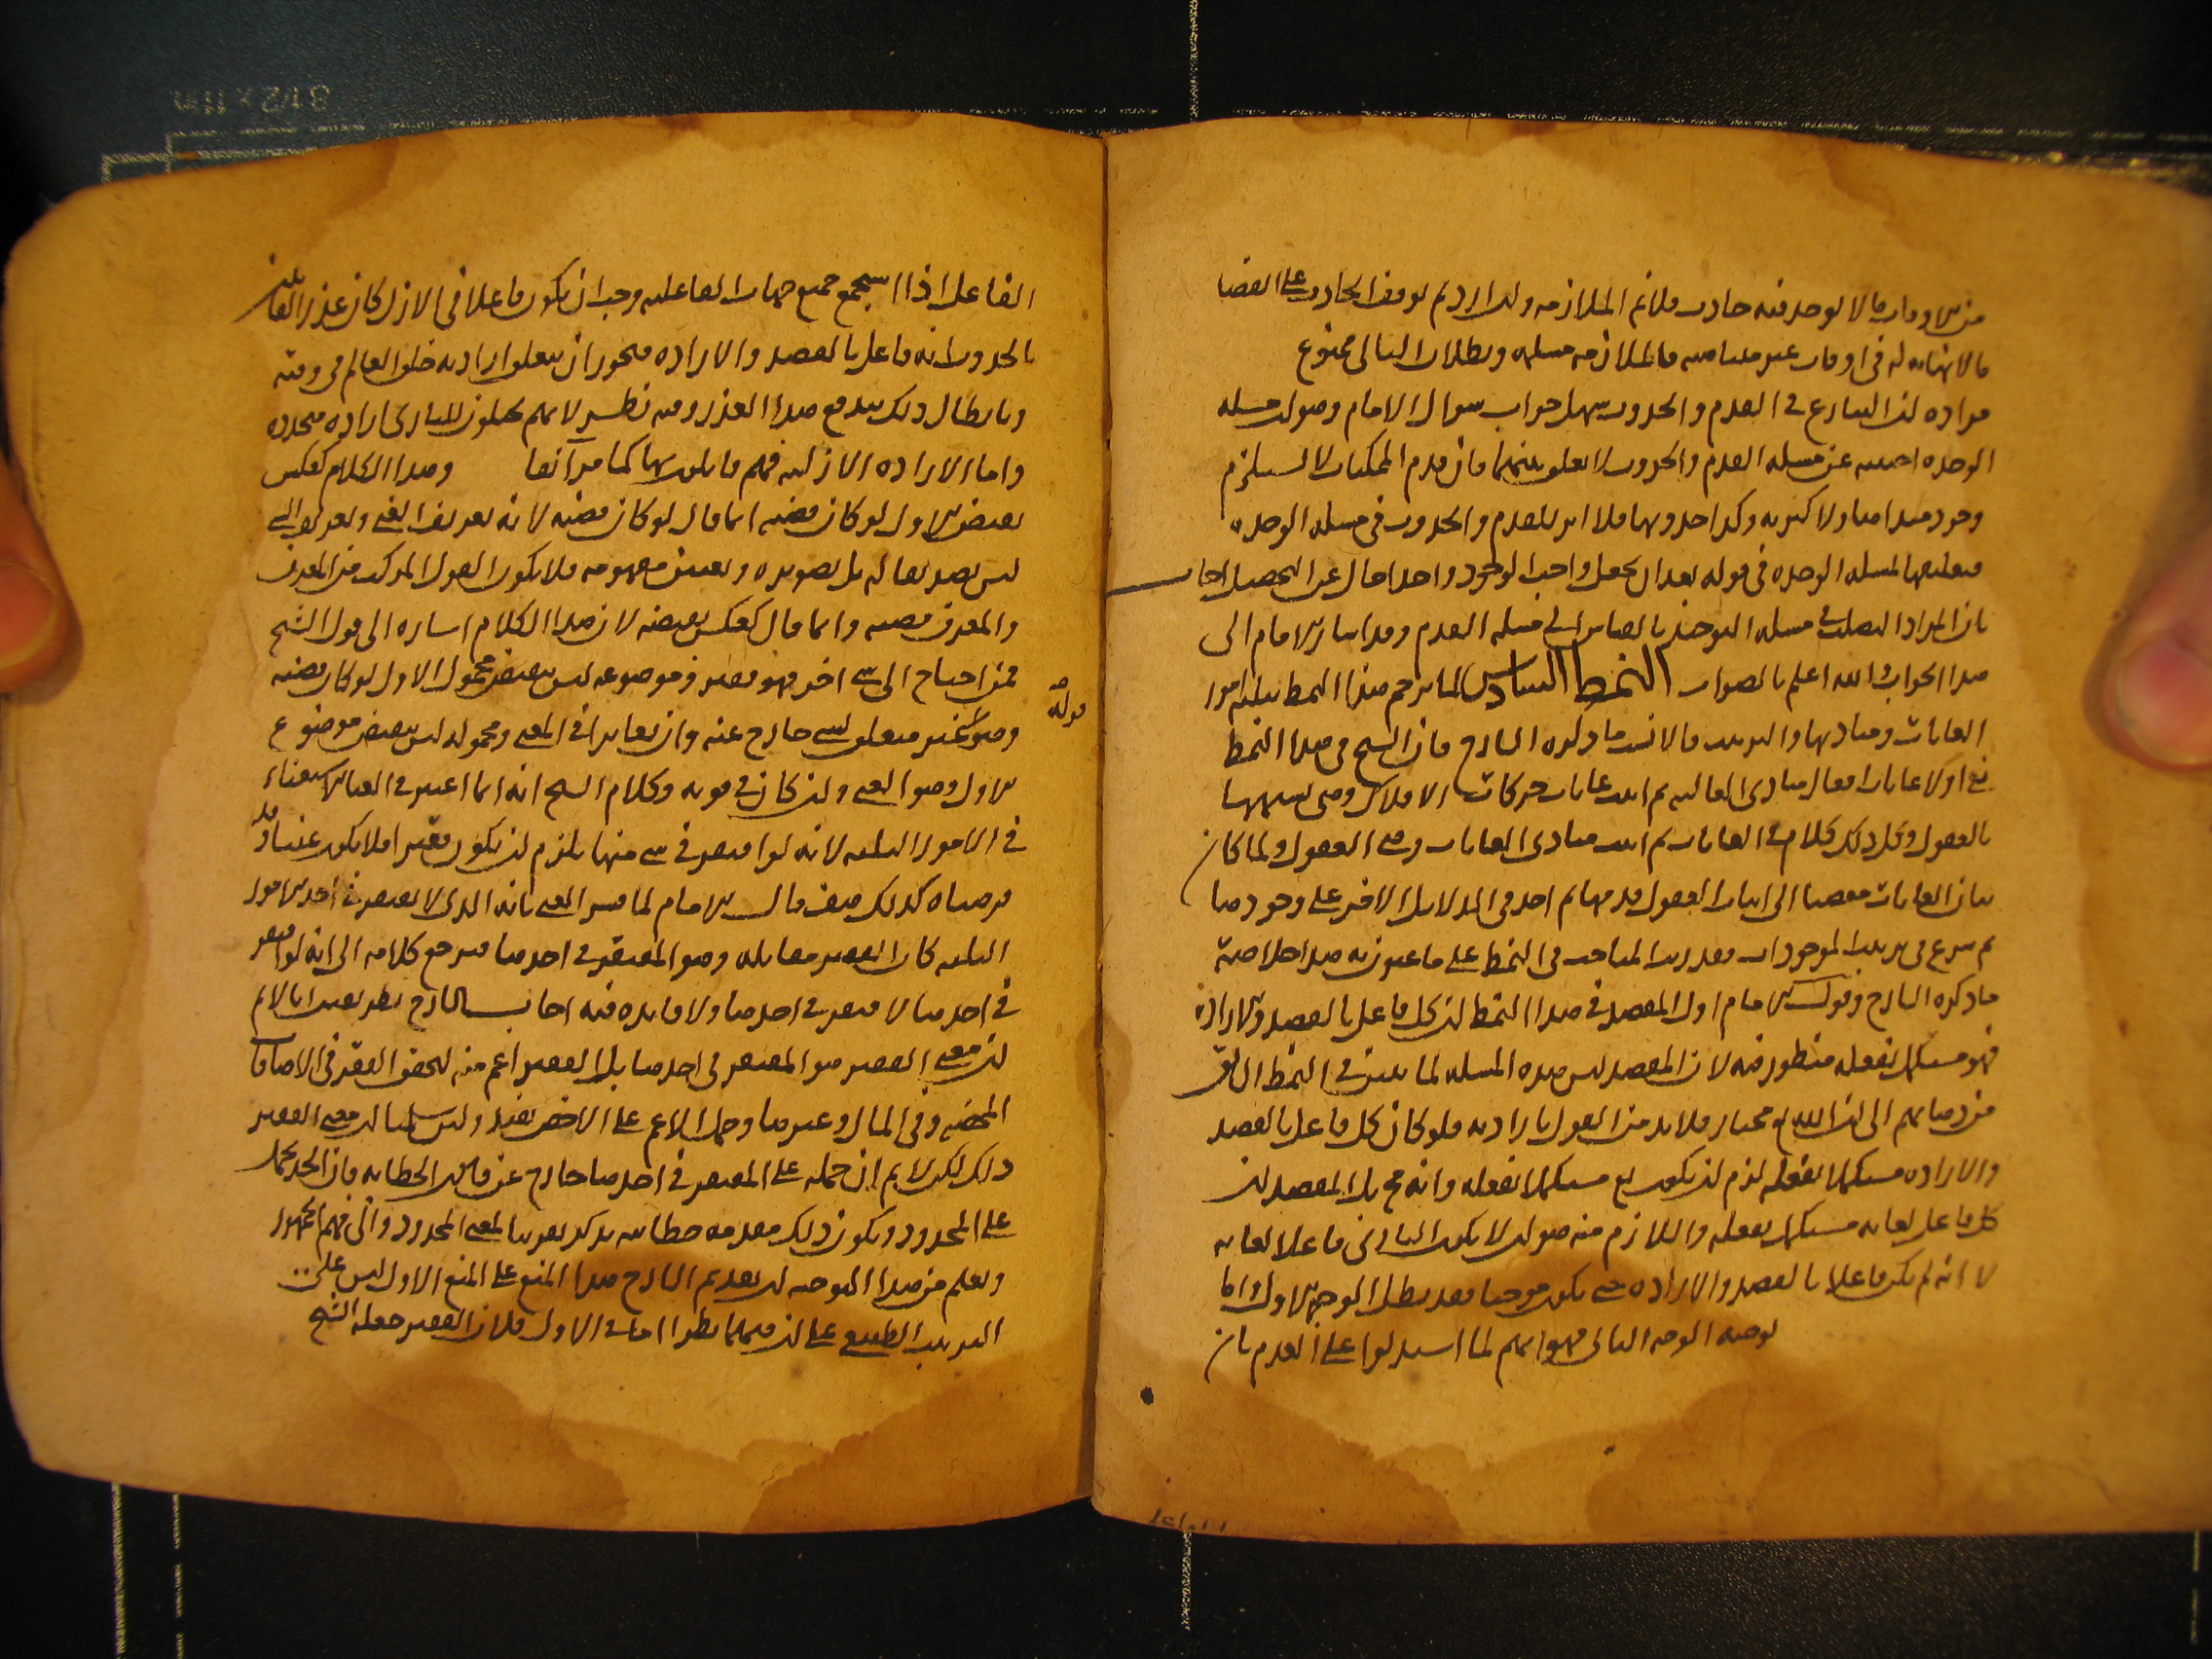 من الاوقات ما لا يوجد فيه حادث فلا نم الملازمة وان اراد ثم توقف الحادث على انقضا
ما لا نهاية له في اوقات غير متناهية فالملازمة مسلمة وبطلان التالي ممنوع
مراده ان التنازع في القدم والحدوث سهل جواب سوال الامام وهو ان مسله
الوحدة اجنبية عن مسله القدم والحدوث لا تعلق بينهما فان قدم الممكنات لا يستلزم
وحدة مبداها ولا كثرته وكذا حدوثها فلا اثر للقدم والحدوث في مسله الوحدة
المسله الوحدة في قوله بعد ان يجعل واجب الوجود واحدا حال عن التحصيل اجاب
بان المراد التصلب في مسله التوحيد بالقياس الى مسله القدم وقد اشار الامام الى
هذا الجواب والله اعلم بالصواب النمط السادس لما ترجم هذا النمط بثلثة امور
الغايات ومباديها والترتيب فالانسب ما ذكره الشارح فان الشيخ في هذا النمط
اولا غايات افعال مبادي العاليه ثم اثبت غايات حركات الافلاك وهي تشبهها
بالعقول وكل ذلك كلام في الغايات ثم اثبت مبادي الغايات وهي العقول ولما كان
بيان الغايات مفضيا الى اثبات العقول قدمها ثم اخذ في الدلايل الاخر على وجودها
ثم شرع في ترتيب الموجودات فقد رتب المباحث في النمط على ما عنون به هذا خلاصة
ما ذكره الشارح وقول الامام اول المقصد في هذا النمط ان كل فاعل بالقصد والارادة
فهو مستكمل بفعله منظور فيه لان المقصد ليس هذه المسله لما بين في النمط السابق
من ذهابهم الى ان الله تع مختار فلا بد من القول بارادته فلو كان كل فاعل بالقصد
والارادة مستكملا بفعله لزم ان يكون تع مستكملا بفعله وانه مح بل المقصد ان
كل فاعل لغاية مستكمل بفعله واللازم منه هو ان لا يكون الباري فاعلا لغاية
لا انه لم يكن فاعلا بالقصد والارادة حتى يكون موجبا فقد بطل الوجه الاول واما
توجيه الوجه الثاني فهو انهم لما استدلوا على القدم بان
الفاعل اذا استجمع جميع جهات الفاعلية وجب ان يكون فاعلا في الازل كان عذر القائلين
بالحدوث انه فاعل بالقصد والارادة فيجوز ان يتعلق ارادته خلق العالم في وقته
وبابطال ذلك يندفع هذا العذر وفيه نظر لانهم يجعلون للباري ارادة متجددة
واما الارادة الازلية فهم قائلون بها كما مر آنفا وهذا الكلام كعكس
نقيض الاول لو كان قضية انما قال لو كان قضية لانه تعريف الغني وتعريف الشي
ليس تصديقا له بل تصويره وتعيين مفهومه فلا يكون القول المركب من المعرف
والمعرف قضية وانما قال كعكس نقيضه لان هذا الكلام اشارة الى قول الشيخ
فمن احتاج الى شي اخر فهو فقير وموضوعه ليس نقيض محمول الاول لو كان قضية
قوله
وهو غير متعلق بشي خارج عنه وان تغايرا في المعنى ومحموله ليس نقيض موضوع
الاول وهو الغني وان كان في قوته وكلام الشيخ انه انما اعتبر في الغنا الاستغناء
في الامور الثلثة لانه لو افتقر في شي منها يلزم ان يكون فقيرا فلا يكون غنيا وقد
فرضناه كذلك هف قال الامام لما فسر الغني بانه الذي لا يفتقر في احد الامور
الثلثة كان الفقير مقابله وهو المفتقر في احدها فيرجع كلامه الى انه لو افتقر
في احدها لافتقر في احدها ولا فايدة فيه اجاب الشارح
ان معنى الفقير هو المفتقر في احدها بل الفقير اعم منه لتحقق الفقر في الاضافات
المحضة وفي المال وغيرها وحمل الاعم على الاخص يفيد ولين سلمنا ان معنى الفقير
ذلك لكن لا نم ان حمله على المفتقر في احدها خارج عن الخطابة فان الحد يحمل
على المحدود ويكون ذلك مقدمة خطابية يذكر تقريبا لمعنى المحدود والى فهم الجمهور
ونعلم من هذا التوجيه ان تقديم الشارح هذا المنع على المنع الاول ليس على
الترتيب الطبيعي على ان فيهما نظرا اما في الاول فلان الفقير جعله الشيخ